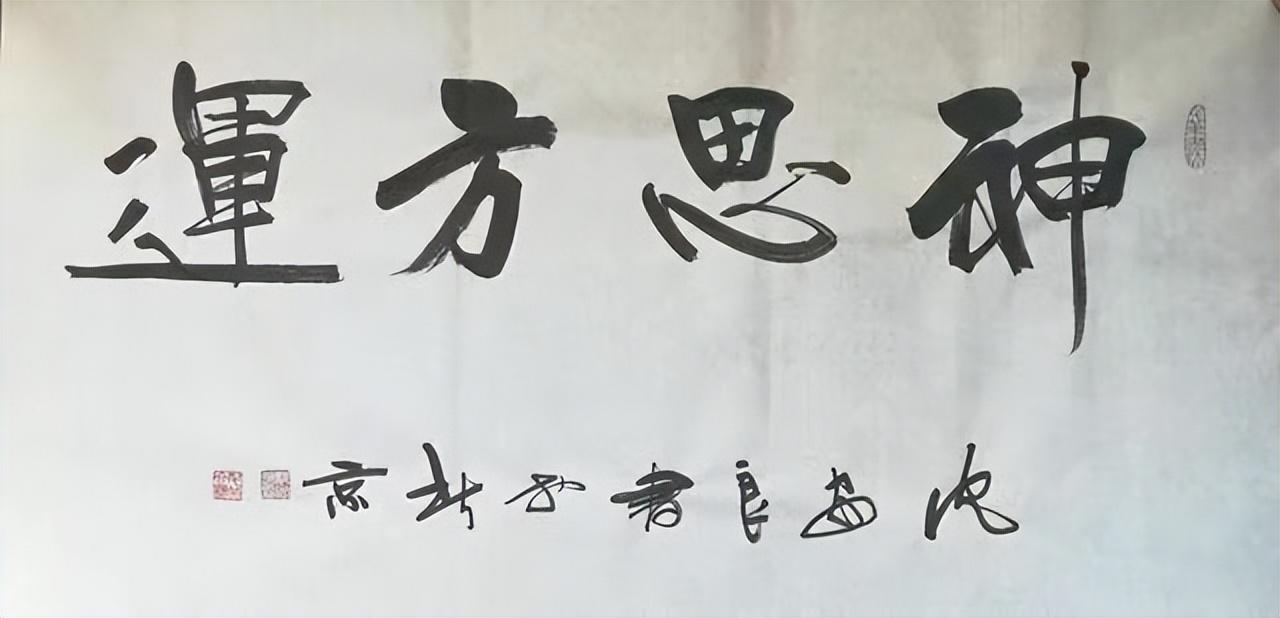 神思方運
沈安良書於北京